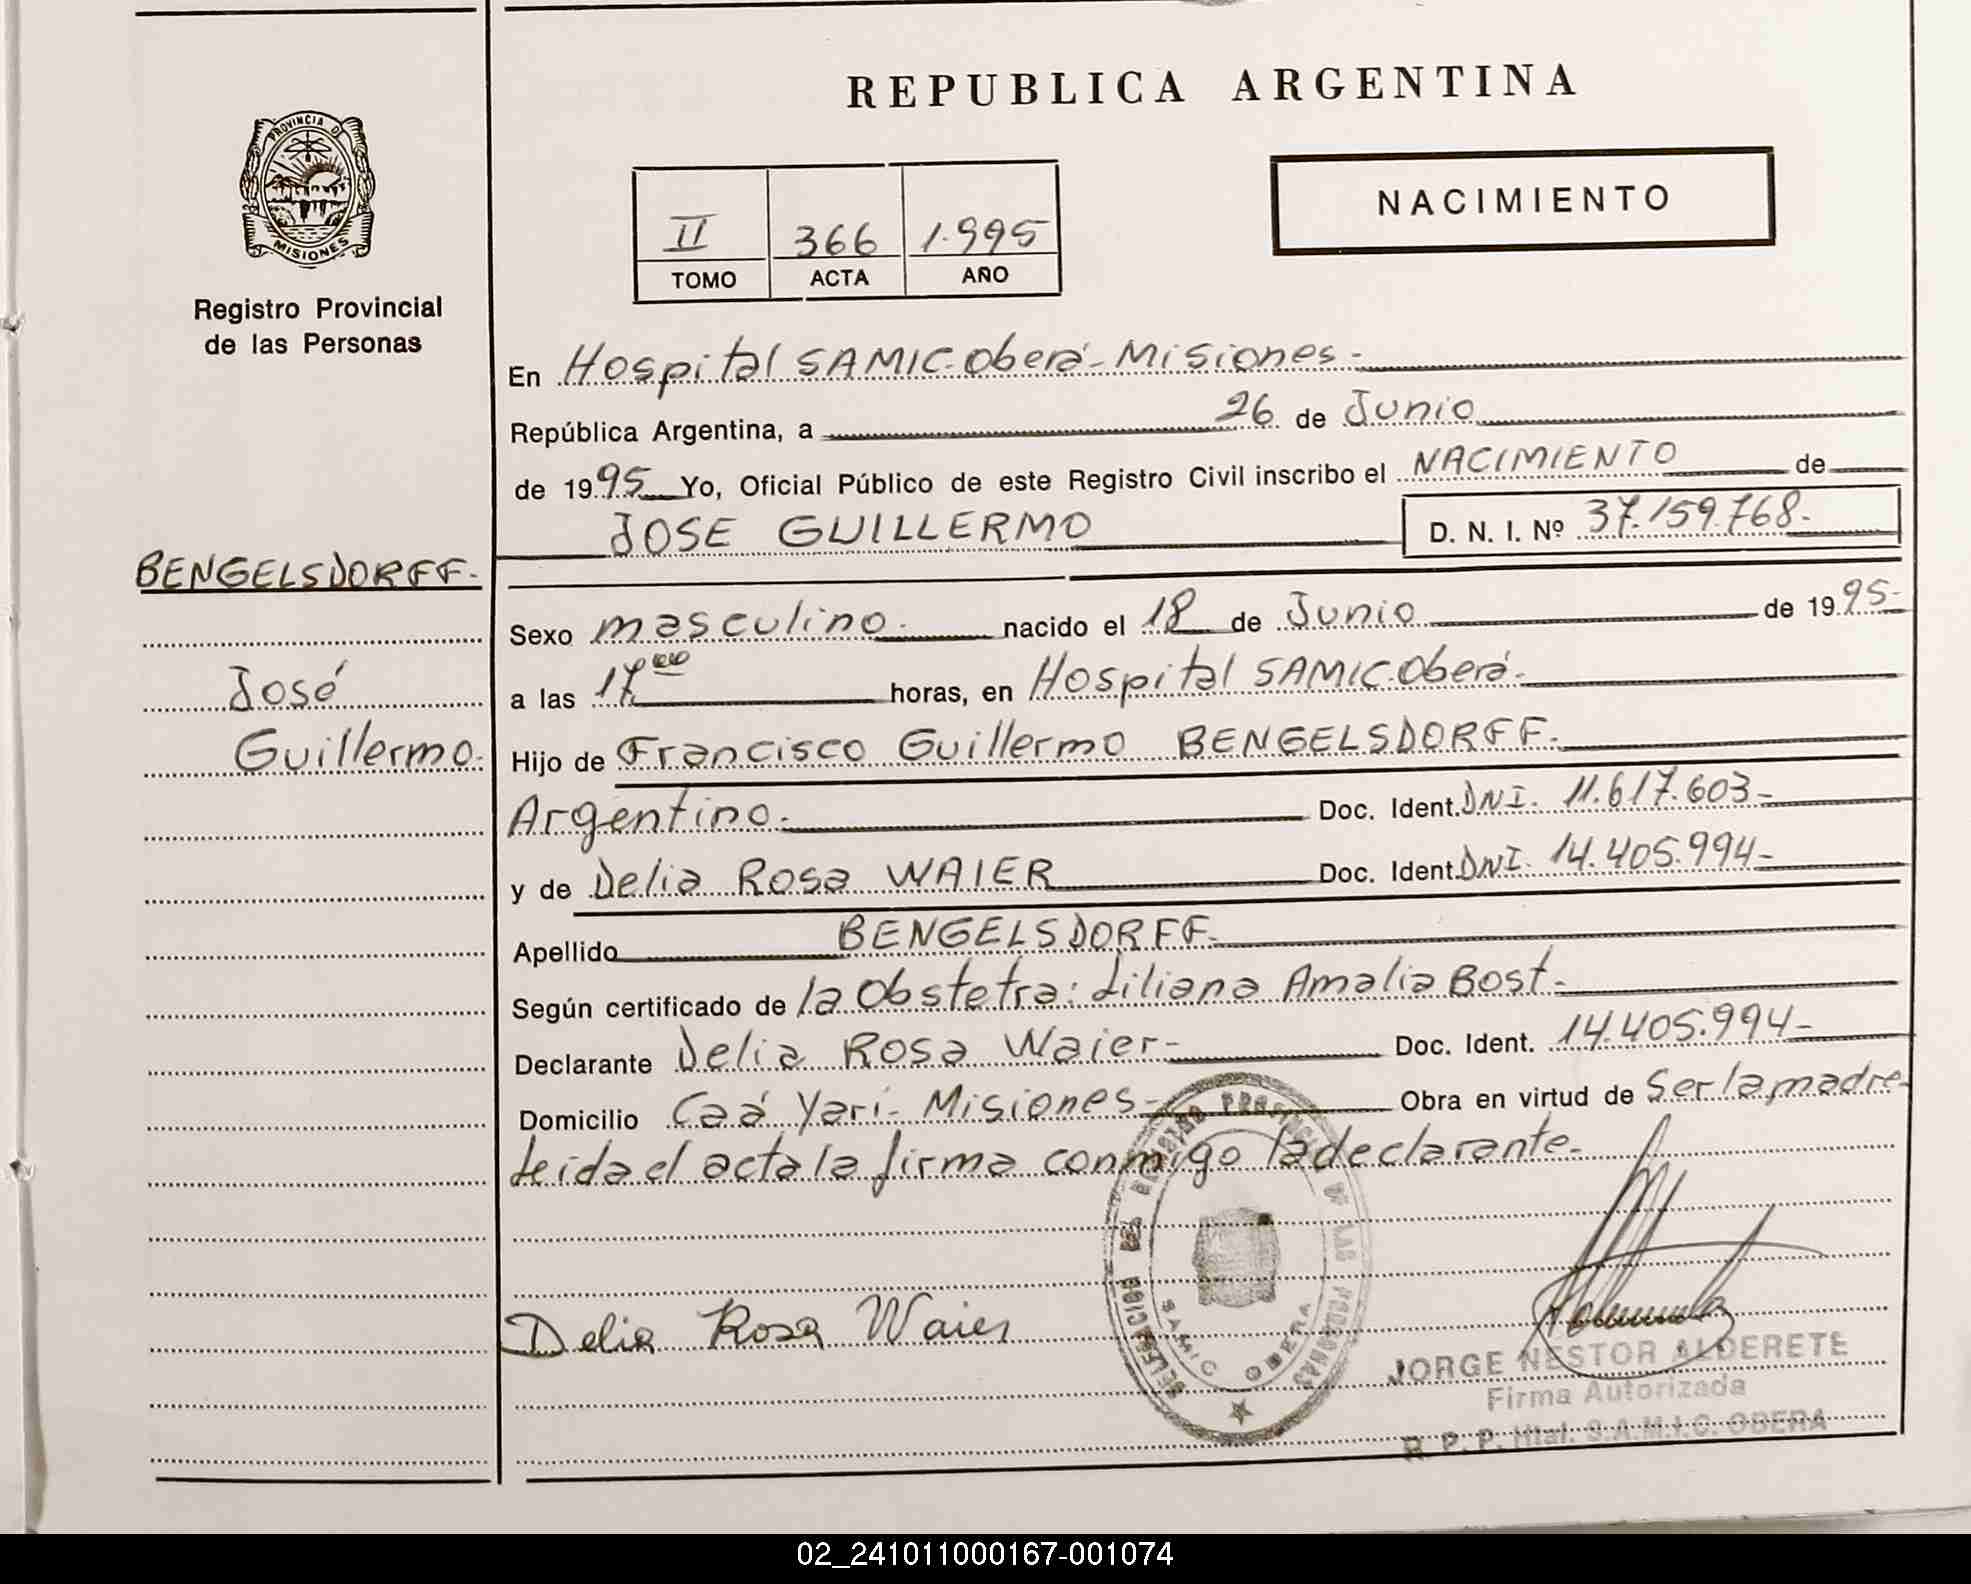 REPUBLICA ARGENTINA
PROVINCIA DE
MISIONES
Registro Provincial
de las Personas
II 366 1.995
TOMO ACTA AÑO
NACIMIENTO
En Hospital SAMIC-Oberá-Misiones-
República Argentina, a 26 de Junio
de 1995 Yo, Oficial Público de este Registro Civil inscribo el NACIMIENTO de
JOSE GUILLERMO D. N. I. Nº 37.159.768-
BENGELSDORFF-
José
Guillermo-
Sexo masculino- nacido el 18 de Junio de 1995-
a las 17 horas, en Hospital SAMIC-Oberá-
Hijo de Francisco Guillermo BENGELSDORFF-
Argentino- Doc. Ident. DNI. 11.617.603-
y de Delia Rosa WAIER Doc. Ident. DNI. 14.405.994-
Apellido BENGELSDORFF-
Según certificado de la Obstetra: Liliana Amalia Bost-
Declarante Delia Rosa Waier- Doc. Ident. 14.405.994-
Domicilio Caá Yarí- Misiones- Obra en virtud de Ser la madre-
Leída el acta la firma conmigo la declarante-
DELEGACION DEL REGISTRO PROVINCIAL DE LAS PERSONAS
SAMIC OBERA
Delia Rosa Waier
JORGE NESTOR ALDERETE
Firma Autorizada
R. P. P. Htal. S.A.M.I.C. OBERA
02_241011000167-001074